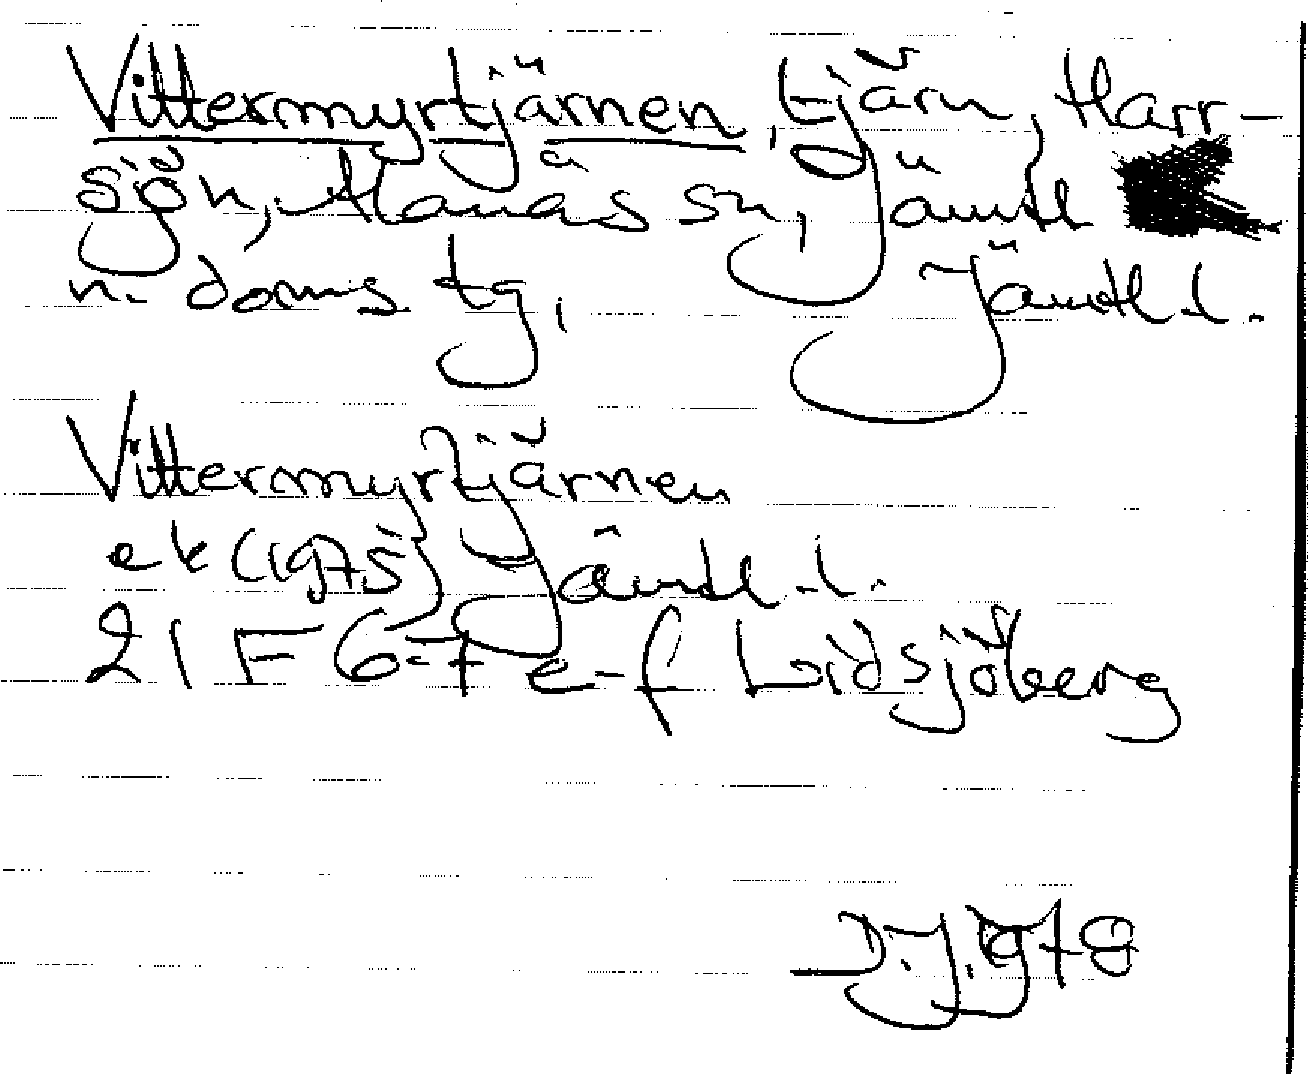 Vittermyrtjärnen, tjärn, Harr-
sjön, Alanäs sn, Jämtl
n. doms. tg, Jämtl. l.
Vittermyrtjärnen
ek (1975) Jämtl. l.
21 F 6-7 e-f Lidsjöberg
D.J. 1978